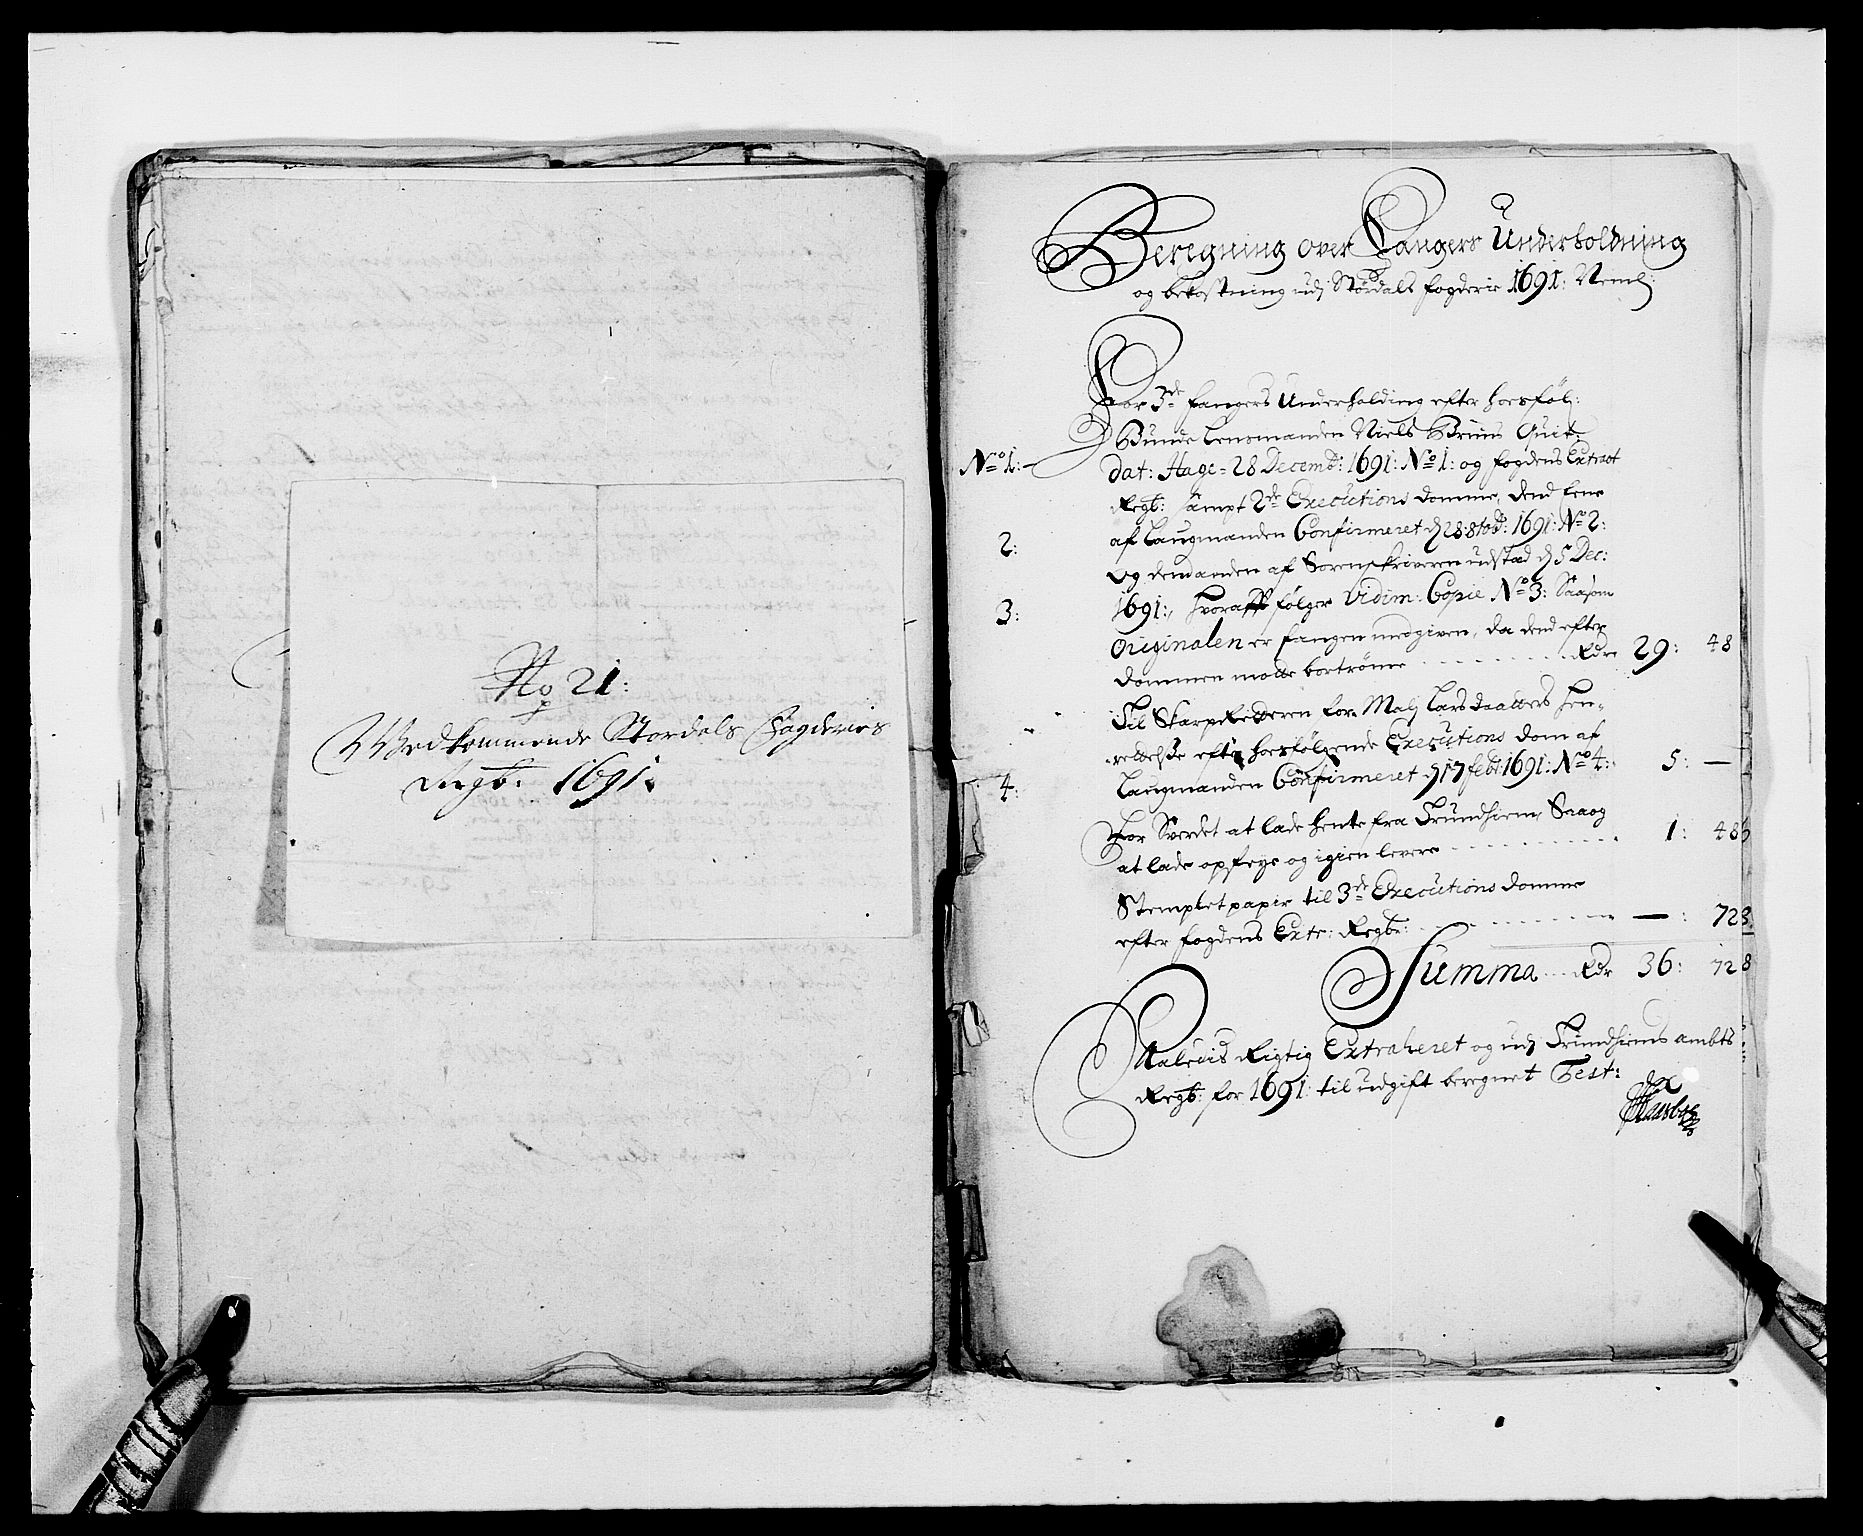 No 21:
Wedkommende Stordels Fogderies
Regb: 1691:
Beregning over Fangers Underholdning
og bekostning udj Stördals fogderie 1691: Neml:
For 3de fangers Underholding efter hoesföl:
Bunde Lensmanden Niels Bruns Quit:
No 1:
dat: Hage 28 Decemb: 1691: No 1: og fogdens Extract
Regb: sampt 2de Executions domme, dend eene
2:
af Laugmanden Confirmeret d 28: 8tod: 1691: No 2:
Og dend anden af Sorenskriveren udstæd d 5 Dec:
3:
1691:, hvoraff følger Vidim: Copie No 3: Saasom
Originalen er fangen medgiven, da dend efter
dommen motte bortröme Rdr 29: 48
Til Skarpretteren for Malj Larsdaatters hen-
rettelsse efter hoesfölgende Executions dom af
4:
Laugmanden Confirmeret d 17 feb: 1691: No 4: 5: —
For Sverdet at lade hente fra Trundhiem, Saaog
at lade opfeye og igien levere 1: 48
Stemplet papir til 3de Executions domme
efter fogdens Extr: Regb: — : 72
Summa Rdr 36: 72
Saaledis Rigtig Extraheret og udj Trundhiems ambts
Regb: for 1691: til udgift beregnet Test: